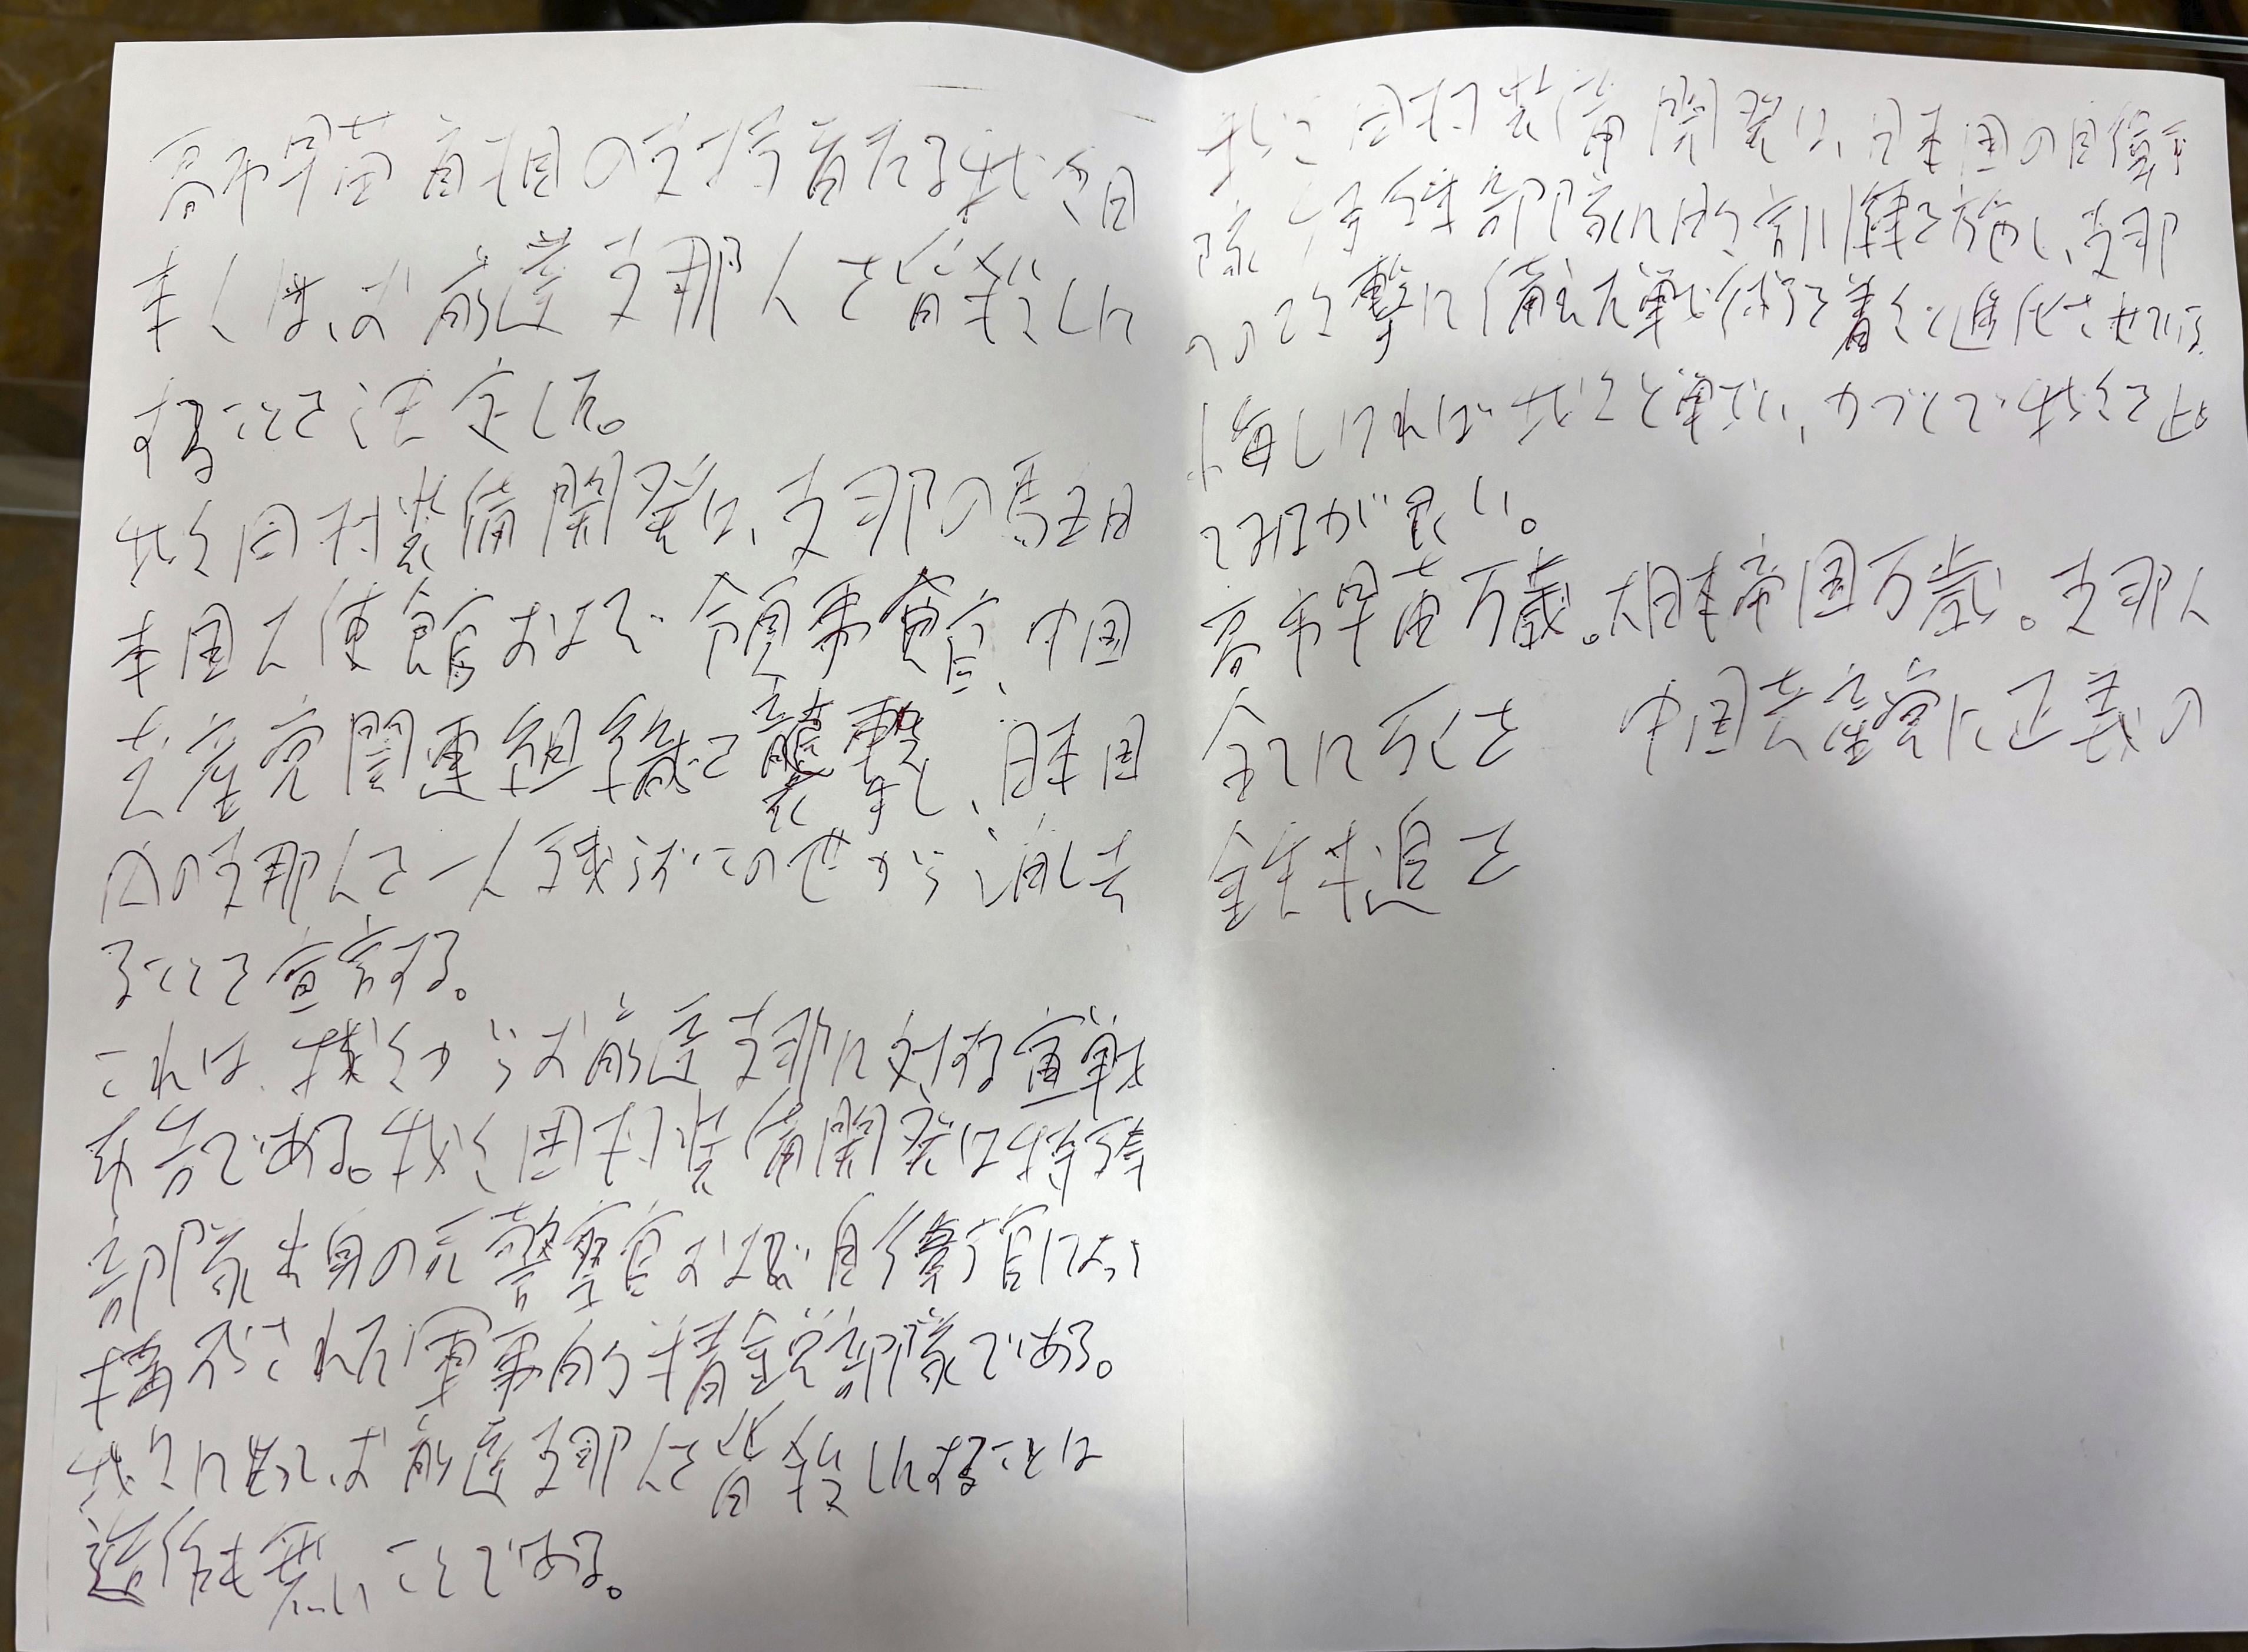 高市早苗首相の支持者たる我々日
本人は、お前達支那人を皆殺しに
することを決定した。
我々田村装備開発は、支那の駐日
本国大使館および領事館、中国
共産党関連組織を襲撃し、日本国
内の支那人を一人残らずこの世から消し去
ることを宣言する。
これは、我々からお前達支那に対する宣戦
布告である。我々田村装備開発は特殊
部隊出身の元警察官および自衛官によって
構成された軍事的精鋭部隊である。
我々に とって、お前達支那人を皆殺しにすることは
造作も無いことである。
我々田村装備開発は、日本国の自衛
隊特殊部隊に 訓練を施し、支那
への攻撃に備えた戦術を着々と進化させている。
悔しければ我々と戦い、力づくで我々を止
めてみるが良い。
高市早苗万歳。大日本帝国万歳。支那人
全てに死を 中国共産党に正義の
鉄槌を